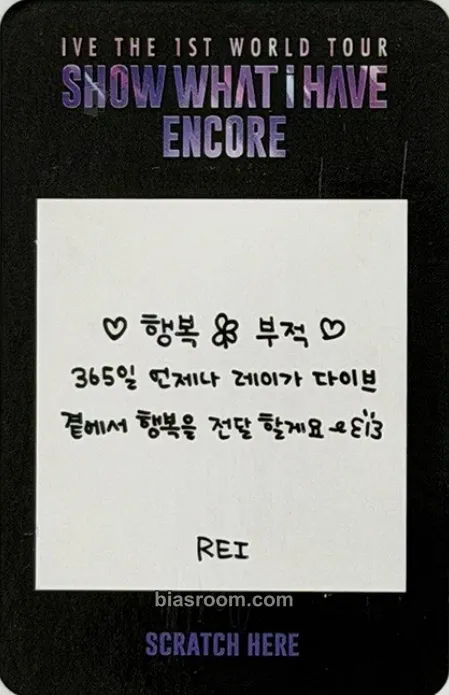 IVE THE 1ST WORLD TOUR
SHOW WHAT i HAVE
ENCORE
♡ 행복 부적 ♡
365일 언제나 레이가 다이브
곁에서 행복을 전달 할게요
REI
biasroom.com
SCRATCH HERE